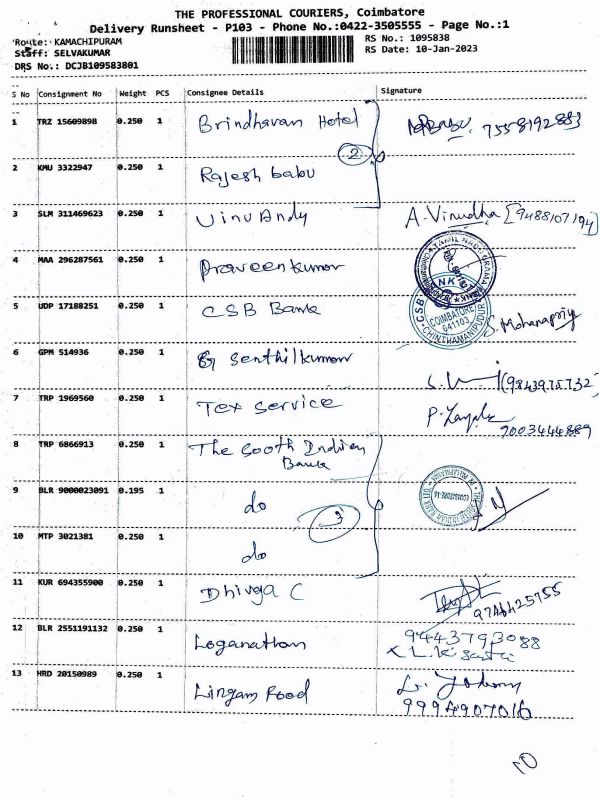 THE PROFESSIONAL COURIERS, Coimbatore
Delivery Runsheet - P103 - Phone No.:0422-3505555 - Page No.:1
Route: KAMACHIPURAM
RS No.: 1095838
Staff: SELVAKUMAR
RS Date: 10-Jan-2023
DRS No.: DCJB109583801
S No Consignment No Weight PCS Consignee Details Signature
1 TRZ 15609898 0.250 1 Brindhavan Hotel 7558192883
2
2 KMU 3322947 0.250 1 Rajesh babu
3 SLM 311469623 0.250 1 Vinu Andy A. Vinudha [9488107194]
4 MAA 296287561 0.250 1 Praveen kumar
5 UDP 17188251 0.250 1 CSB Bank S. Mohanapriya
CSB BANK COIMBATORE 641103 CHINTHAMANIPUDUR
6 GPM 514936 0.250 1 Senthilkumar (9843975732)
7 TRP 1969560 0.250 1 Tex Service 9003444889
8 TRP 6866913 0.250 1 The South Indian
Bank
9 BLR 9000023091 0.195 1 do
3
10 MTP 3021381 0.250 1 do
11 KUR 694355900 0.250 1 Dhivya C
12 BLR 2551191132 0.250 1 Loganathan 9443793088
13 HRD 20150989 0.250 1 Lingam Food
9994907016
10